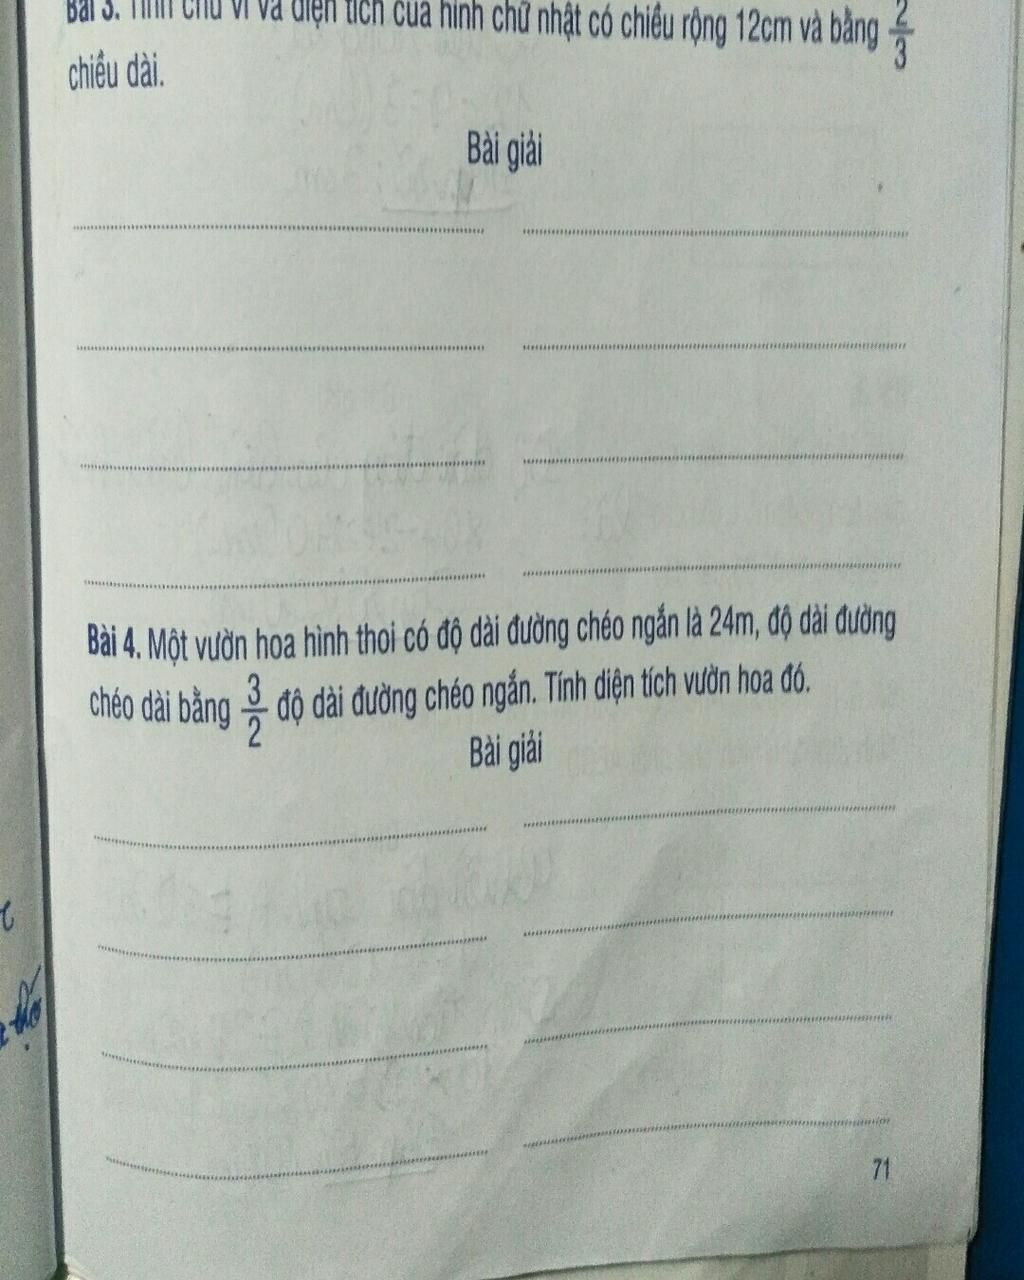 Bài 3. Tính chu vi và diện tích của hình chữ nhật có chiều rộng 12cm và bằng 2/3
chiều dài.
Bài giải
Bài 4. Một vườn hoa hình thoi có độ dài đường chéo ngắn là 24m, độ dài đường
chéo dài bằng 3/2 độ dài đường chéo ngắn. Tính diện tích vườn hoa đó.
Bài giải
71